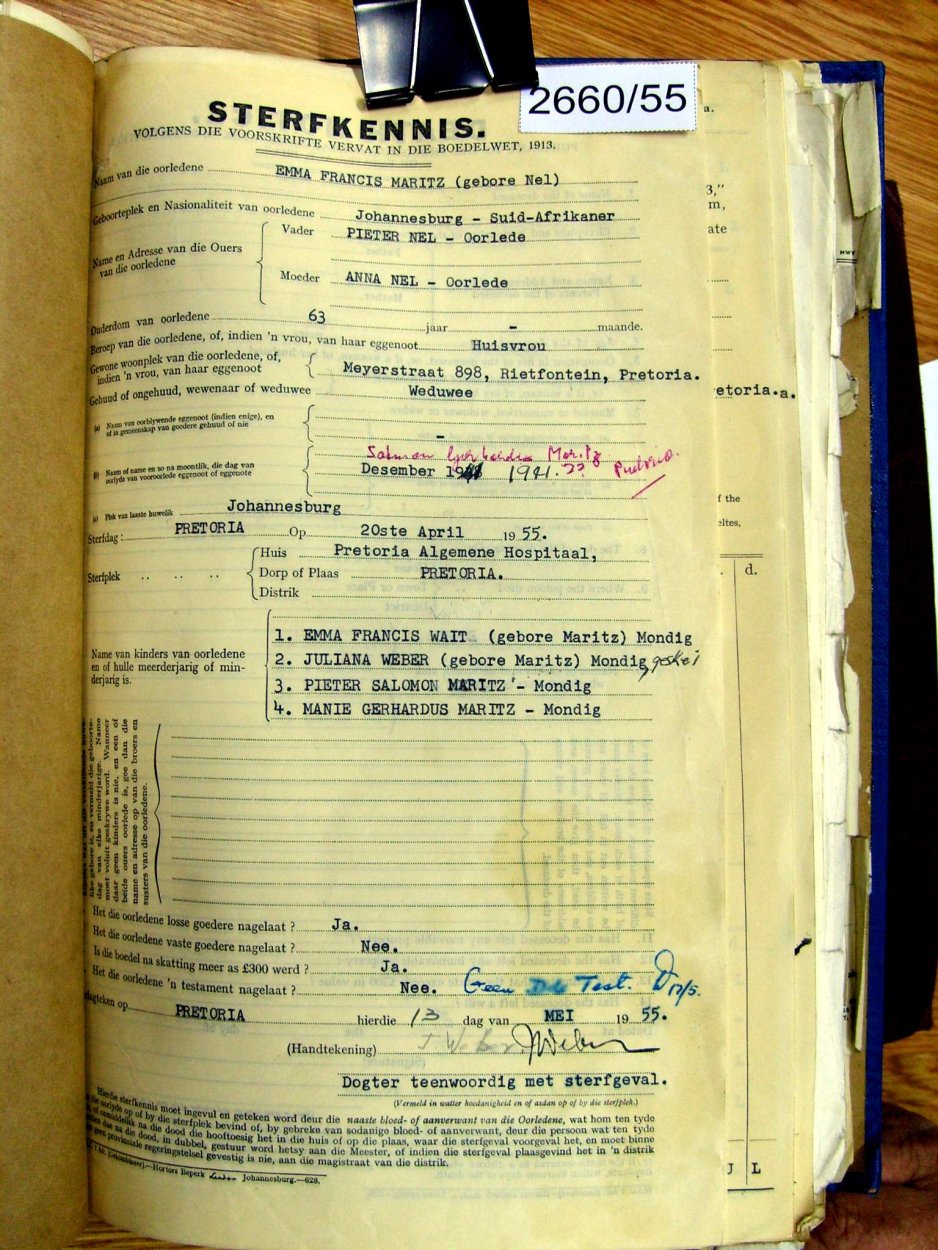 2660/55
STERFKENNIS.
VOLGENS DIE VOORSKRIFTE VERVAT IN DIE BOEDELWET, 1913.
Naam van die oorledene EMMA FRANCIS MARITZ (gebore Nel)
Geboorteplek en Nasionaliteit van oorledene Johannesburg - Suid-Afrikaner
Name en Adresse van die Ouers van die oorledene
Vader PIETER NEL - Oorlede
Moeder ANNA NEL - Oorlede
Ouderdom van oorledene 63 jaar - maande.
Beroep van die oorledene, of, indien 'n vrou, van haar eggenoot Huisvrou
Gewone woonplek van die oorledene, of,
indien 'n vrou, van haar eggenoot Meyerstraat 898, Rietfontein, Pretoria.
Gehuud of ongehuud, wewenaar of weduwee Weduwee
(a) Naam van oorblywende eggenoot (indien enige), en
of in gemeenskap van goedere gehuud of nie -
Maritz Pretoria.
(b) Naam of name en so na moontlik, die dag van
oorlyde van vooroorlede eggenoot of eggenote
Desember 1941.
(c) Plek van laaste huwelik Johannesburg
Sterfdag: PRETORIA Op 20ste April 1955.
Sterfplek
Huis Pretoria Algemene Hospitaal,
Dorp of Plaas PRETORIA.
Distrik
Name van kinders van oorledene
en of hulle meerderjarig of min-
derjarig is.
1. EMMA FRANCIS WAIT (gebore Maritz) Mondig
2. JULIANA WEBER (gebore Maritz) Mondig, geskei
3. PIETER SALOMON MARITZ - Mondig
4. MANIE GERHARDUS MARITZ - Mondig
like gebore is, en vermeld die geboorte-
dag van elke minderjarige. Name
moet voluit geskrywe word. Wanneer
daar geen kinders is nie, en een of
beide ouers oorlede is, gee dan die
name en adresse op van die broers en
susters van die oorledene.
Het die oorledene losse goedere nagelaat? Ja.
Het die oorledene vaste goedere nagelaat? Nee.
Is die boedel na skatting meer as £300 werd? Ja.
Het die oorledene 'n testament nagelaat? Nee. Geen Test. 17/5.
PRETORIA hierdie 13 dag van MEI 1955.
(Handtekening) J. Weber JWeber
Dogter teenwoordig met sterfgeval.
(Vermeld in watter hoedanigheid en of asdan op of by die sterfplek.)
Hierdie sterfkennis moet ingevul en geteken word deur die naaste bloed- of aanverwant van die Oorledene, wat hom ten tyde
die oorlyde op of by die sterfplek bevind of, by gebreke van sodanige bloed- of aanverwant, deur die persoon wat ten tyde
of onmiddellik na die dood die hooftoesig het in die huis of op die plaas, waar die sterfgeval voorgeval het, en moet binne
dae na die dood, in dubbel, gestuur word hetsy aan die Meester, of indien die sterfgeval plaasgevind het in 'n distrik
geen provinsiale regeringstelsel gevestig is nie, aan die magistraat van die distrik.
Hortors Beperk Johannesburg.—628.
a.
3,"
m,
ate
etoria.a.
f the
eltes,
d.
J L